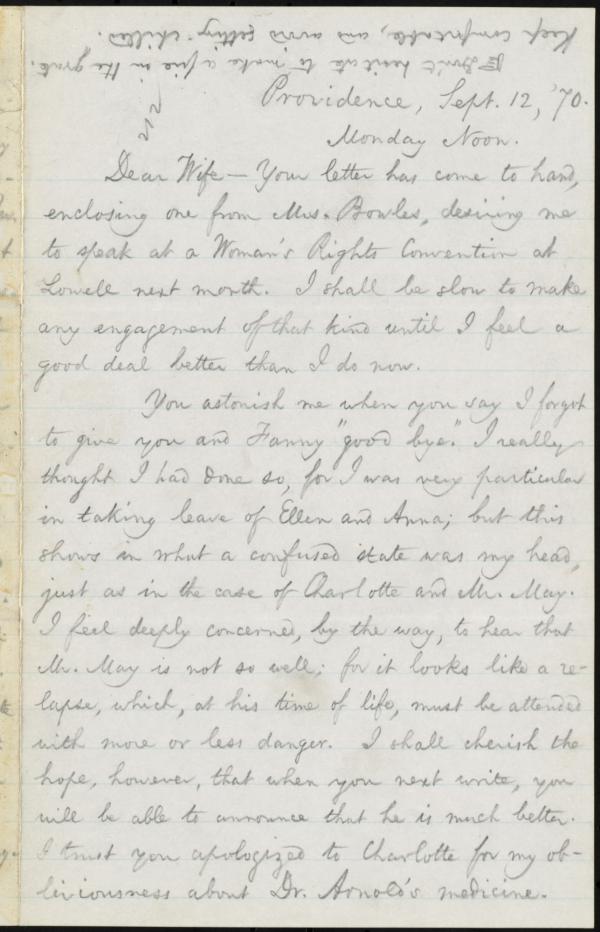 Don't hesitate to make a fire in the grate.
Keep comfortable, and avoid getting chilled.
Providence, Sept. 12, '70.
Monday Noon.
Dear Wife — Your letter has come to hand,
enclosing one from Mrs. Bowles, desiring me
to speak at a Woman's Rights Convention at
Lowell next month. I shall be slow to make
any engagement of that kind until I feel a
good deal better than I do now.
You astonish me when you say I forgot
to give you and Fanny "good bye." I really
thought I had done so, for I was very particular
in taking leave of Ellen and Anna; but this
shows in what a confused state was my head,
just as in the case of Charlotte and Mr. May.
I feel deeply concerned, by the way, to hear that
Mr. May is not so well; for it looks like a re-
lapse, which, at his time of life, must be attended
with more or less danger. I shall cherish the
hope, however, that when you next write, you
will be able to announce that he is much better.
I trust you apologized to Charlotte for my ob-
liviousness about Dr. Arnold's medicine.